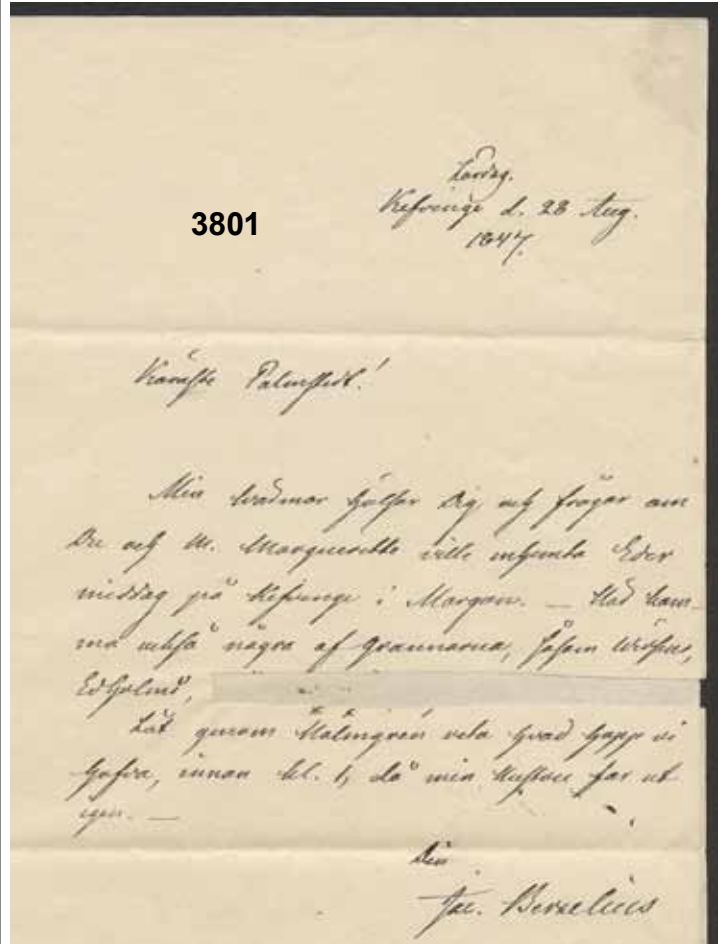 Lördag.
Kefvinge d. 28 Aug.
1847.
3801
Käraste Palmstedt!
Min helsar Dig och frågar om
Du och M. Marguerette ville intaga Eder
middag på Kefvinge i Morgon. — kom-
ma också några af grannarna, såsom
Edholms,
Låt genom Malmgren veta hvad hopp vi
hafva, innan kl. 1, då min far ut
igen. —
Din
Jac. Berzelius